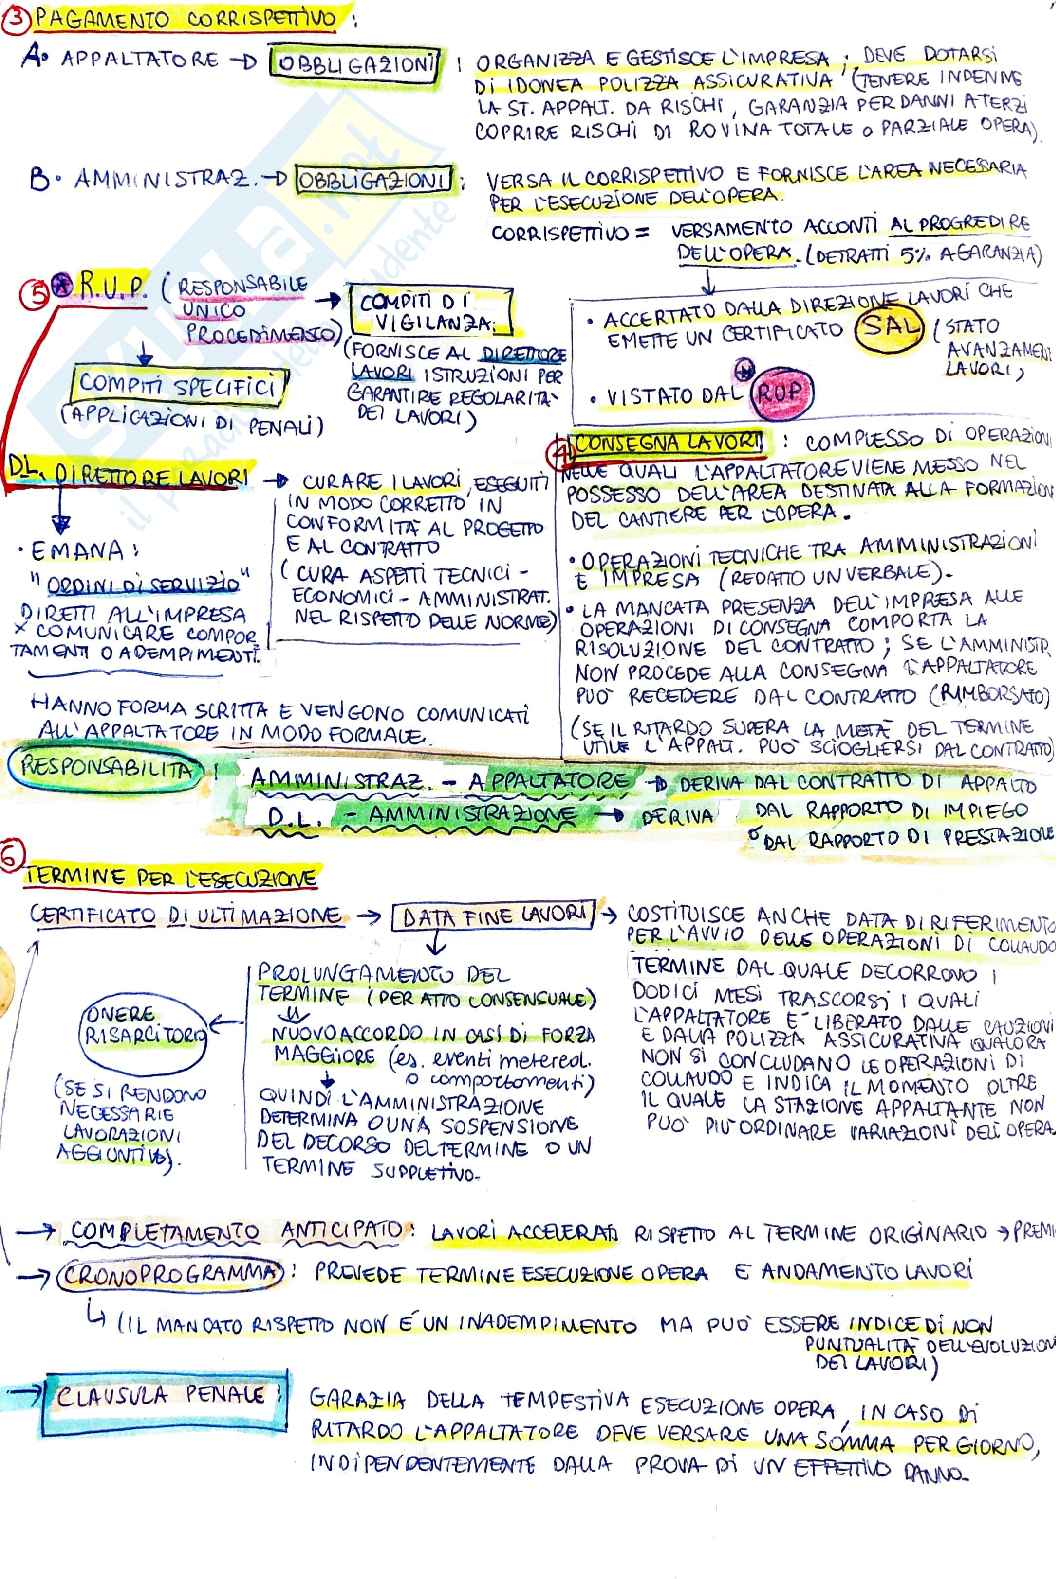 ③ PAGAMENTO CORRISPETTIVO :
A• APPALTATORE → OBBLIGAZIONI : ORGANIZZA E GESTISCE L'IMPRESA ; DEVE DOTARSI
DI IDONEA POLIZZA ASSICURATIVA (TENERE INDENNE
LA ST. APPALT. DA RISCHI, GARANZIA PER DANNI A TERZI
COPRIRE RISCHI DI ROVINA TOTALE O PARZIALE OPERA)
B• AMMINISTRAZ. → OBBLIGAZIONI : VERSA IL CORRISPETTIVO E FORNISCE L'AREA NECESSARIA
PER L'ESECUZIONE DELL'OPERA.
CORRISPETTIVO = VERSAMENTO ACCONTI AL PROGREDIRE
DELL'OPERA. (DETRATTI 5% A GARANZIA)
• ACCERTATO DALLA DIREZIONE LAVORI CHE
EMETTE UN CERTIFICATO SAL (STATO
AVANZAMENT
LAVORI)
• VISTATO DAL RUP
⑤ R.U.P. (RESPONSABILE
UNICO
PROCEDIMENTO)
→ COMPITI DI
VIGILANZA.
(FORNISCE AL DIRETTORE
LAVORI ISTRUZIONI PER
GARANTIRE REGOLARITA'
DEI LAVORI)
COMPITI SPECIFICI
(APPLICAZIONI DI PENALI)
DL. DIRETTORE LAVORI → CURARE I LAVORI, ESEGUITI
IN MODO CORRETTO IN
CONFORMITÀ AL PROGETTO
E AL CONTRATTO
(CURA ASPETTI TECNICI -
ECONOMICI - AMMINISTRAT.
NEL RISPETTO DELLE NORME)
• EMANA :
"ORDINI DI SERVIZIO"
DIRETTI ALL'IMPRESA
x COMUNICARE COMPOR
TAMENTI O ADEMPIMENTI.
HANNO FORMA SCRITTA E VENGONO COMUNICATI
ALL'APPALTATORE IN MODO FORMALE.
④ CONSEGNA LAVORI : COMPLESSO DI OPERAZIONI
NELLE QUALI L'APPALTATORE VIENE MESSO NEL
POSSESSO DELL'AREA DESTINATA ALLA FORMAZION
DEL CANTIERE PER L'OPERA.
• OPERAZIONI TECNICHE TRA AMMINISTRAZIONI
E IMPRESA (REDATTO UN VERBALE).
• LA MANCATA PRESENZA DELL'IMPRESA ALLE
OPERAZIONI DI CONSEGNA COMPORTA LA
RISOLUZIONE DEL CONTRATTO ; SE L'AMMINISTR
NON PROCEDE ALLA CONSEGNA L'APPALTATORE
PUO' RECEDERE DAL CONTRATTO (RIMBORSATO)
(SE IL RITARDO SUPERA LA METÀ DEL TERMINE
UTILE L'APPALT. PUO' SCIOGLIERSI DAL CONTRATTO)
RESPONSABILITA' : AMMINISTRAZ. - APPALTATORE → DERIVA DAL CONTRATTO DI APPALTO
D.L. - AMMINISTRAZIONE → DERIVA DAL RAPPORTO DI IMPIEGO
O DAL RAPPORTO DI PRESTAZIONE
⑥ TERMINE PER L'ESECUZIONE
CERTIFICATO DI ULTIMAZIONE → DATA FINE LAVORI → COSTITUISCE ANCHE DATA DI RIFERIMENTO
PER L'AVVIO DELLE OPERAZIONI DI COLLAUDO
TERMINE DAL QUALE DECORRONO I
DODICI MESI TRASCORSI I QUALI
L'APPALTATORE E' LIBERATO DALLE CAUZIONI
E DALLA POLIZZA ASSICURATIVA QUALORA
NON SI CONCLUDANO LE OPERAZIONI DI
COLLAUDO E INDICA IL MOMENTO OLTRE
IL QUALE LA STAZIONE APPALTANTE NON
PUO' PIU' ORDINARE VARIAZIONI DELL'OPERA
PROLUNGAMENTO DEL
TERMINE (PER ATTO CONSENSUALE)
NUOVO ACCORDO IN CASI DI FORZA
MAGGIORE (es. eventi metereol.
o comportamenti)
QUINDI L'AMMINISTRAZIONE
DETERMINA O UNA SOSPENSIONE
DEL DECORSO DEL TERMINE O UN
TERMINE SUPPLETIVO.
ONERE
RISARCITORIO
(SE SI RENDONO
NECESSARIE
LAVORAZIONI
AGGIUNTIVE).
→ COMPLETAMENTO ANTICIPATO : LAVORI ACCELERATI RISPETTO AL TERMINE ORIGINARIO → PREMI
→ CRONOPROGRAMMA : PREVEDE TERMINE ESECUZIONE OPERA E ANDAMENTO LAVORI
↳ (IL MANCATO RISPETTO NON É UN INADEMPIMENTO MA PUO' ESSERE INDICE DI NON
PUNTUALITÀ DELL'EVOLUZION
DEI LAVORI)
→ CLAUSULA PENALE : GARAZIA DELLA TEMPESTIVA ESECUZIONE OPERA, IN CASO DI
RITARDO L'APPALTATORE DEVE VERSARE UNA SOMMA PER GIORNO,
INDIPENDENTEMENTE DALLA PROVA DI UN EFFETTIVO DANNO.